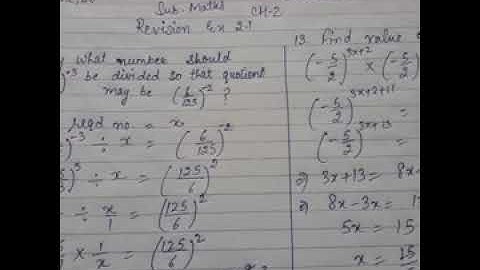 Sub. Maths
CH-2
Revision Ex 2.1
What number should
)⁻³ be divided so that quotient
may be (6/125)⁻² ?
reqd no. = x
)⁻³ ÷ x = (6/125)⁻²
)³ ÷ x = (125/6)²
÷ x/1 = (125/6)²
× 1/x = (125/6)²
13. Find value
(-5/2)³ˣ⁺² × (-5/2)
(-5/2)³ˣ⁺²⁺¹¹ =
(-5/2)³ˣ⁺¹³ =
⇒ 3x+13 = 8x
⇒ 8x-3x = 1
5x = 15
x = 15